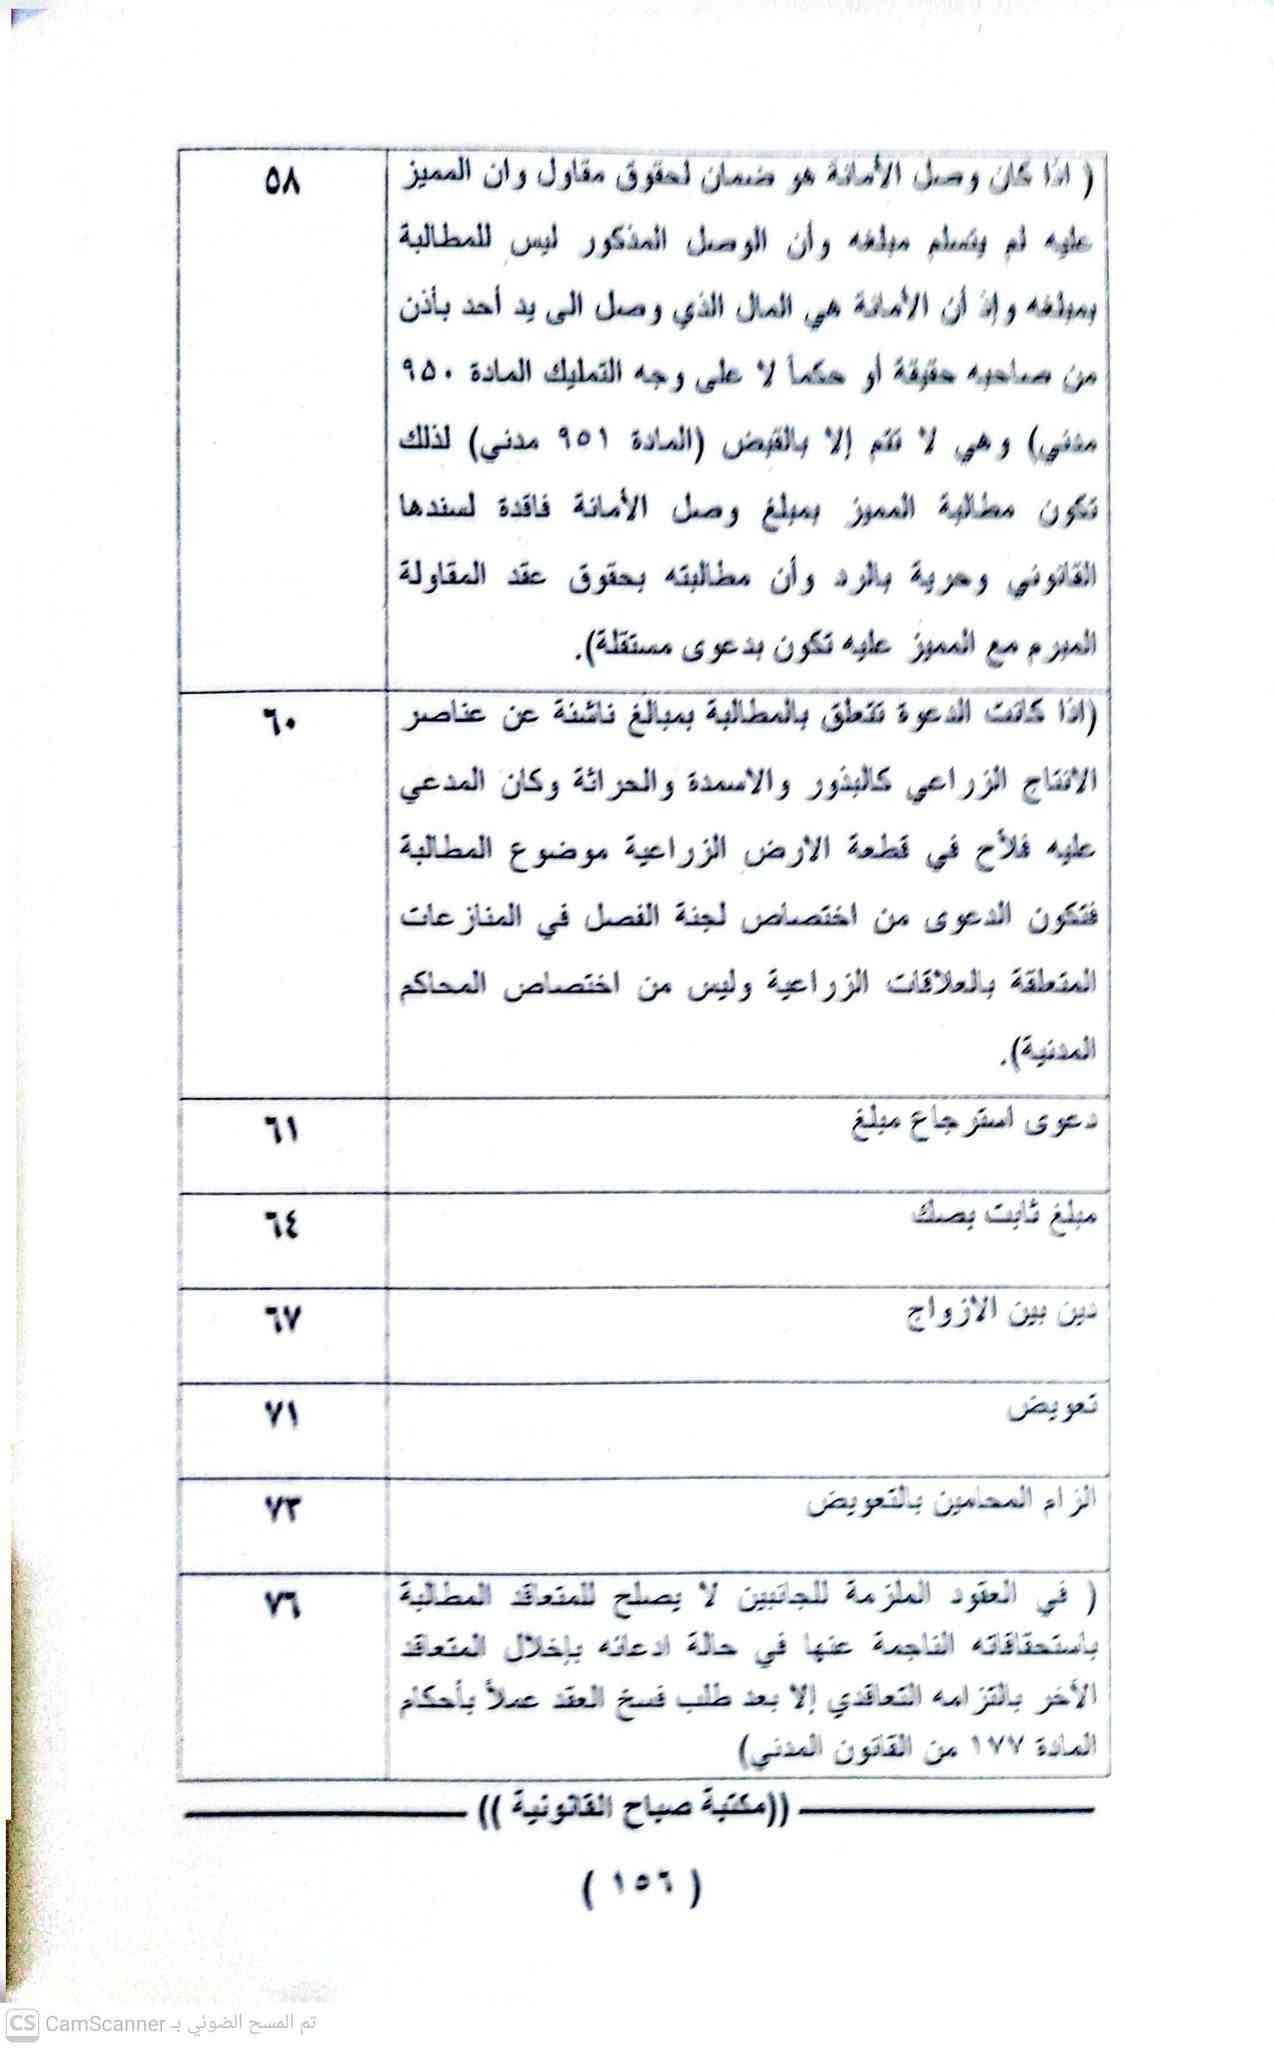 ( اذا كان وصل الأمانة هو ضمان لحقوق مقاول وان المميز
٥٨
عليه لم يتسلم مبلغه وأن الوصل المذكور ليس للمطالبة
بمبلغه وإذ أن الأمانة هي المال الذي وصل الى يد أحد بأذن
من صاحبه حقيقة أو حكماً لا على وجه التمليك المادة ٩٥٠
مدني) وهي لا تتم إلا بالقبض (المادة ٩٥١ مدني) لذلك
تكون مطالبة المميز بمبلغ وصل الأمانة فاقدة لسندها
القانوني وحرية بالرد وأن مطالبته بحقوق عقد المقاولة
المبرم مع المميز عليه تكون بدعوى مستقلة).
(اذا كانت الدعوة تتعلق بالمطالبة بمبالغ ناشئة عن عناصر
٦٠
الانتاج الزراعي كالبذور والاسمدة والحراثة وكان المدعي
عليه فلاح في قطعة الارض الزراعية موضوع المطالبة
فتكون الدعوى من اختصاص لجنة الفصل في المنازعات
المتعلقة بالعلاقات الزراعية وليس من اختصاص المحاكم
المدنية).
دعوى استرجاع مبلغ
٦١
مبلغ ثابت بصك
٦٤
دين بين الازواج
٦٧
تعويض
٧١
الزام المحامين بالتعويض
٧٣
( في العقود الملزمة للجانبين لا يصلح للمتعاقد المطالبة
٧٦
باستحقاقاته الناجمة عنها في حالة ادعائه بإخلال المتعاقد
الأخر بالتزامه التعاقدي إلا بعد طلب فسخ العقد عملاً بأحكام
المادة ١٧٧ من القانون المدني)
((مكتبة صباح القانونية ))
( ١٥٦ )
CS CamScanner تم المسح الضوئي بـ